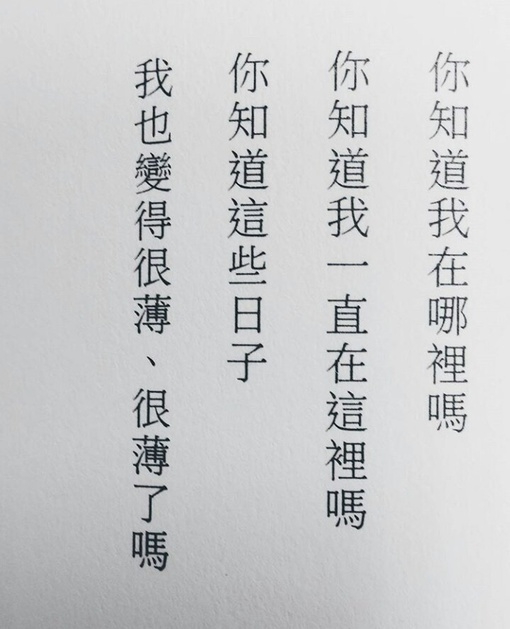 你知道我在哪裡嗎
你知道我一直在這裡嗎
你知道這些日子
我也變得很薄、很薄了嗎